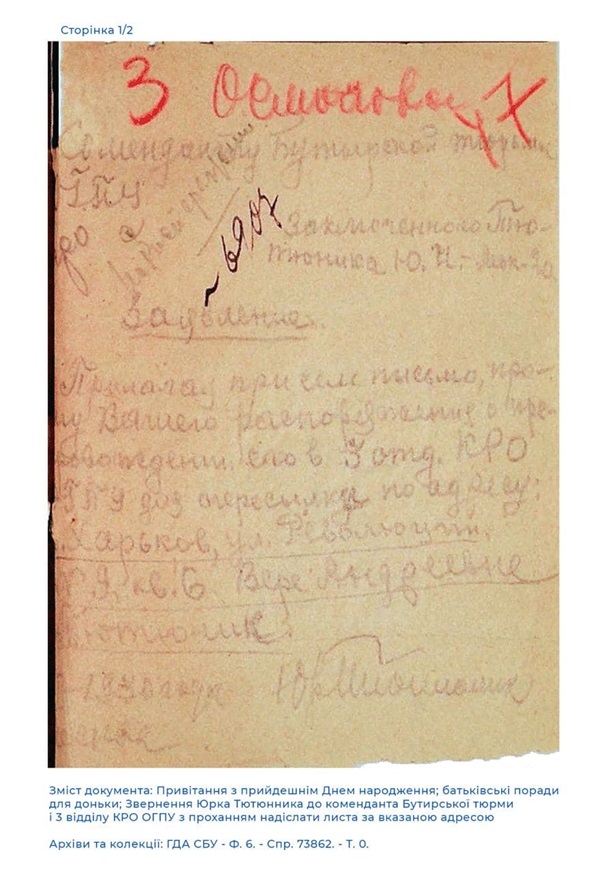 Сторінка 1/2
З
Коменданту Бутырской тюрьмы
ГПУ
~ 6907
Заключенного Тю-
тюника Ю. И.
Заявление.
Прилагая при сем письмо, про-
шу Вашего распоряжения о пре-
его в 3 отд. КРО
ГПУ для пересылки по адресу:
Харьков, ул. Революции,
№ 9, кв. 6 Вере Андреевне
Тютюник.
Зміст документа: Привітання з прийдешнім Днем народження; батьківські поради
для доньки; Звернення Юрка Тютюнника до коменданта Бутирської тюрми
і 3 відділу КРО ОГПУ з проханням надіслати листа за вказаною адресою
Архіви та колекції: ГДА СБУ - Ф. 6. - Спр. 73862. - Т. 0.